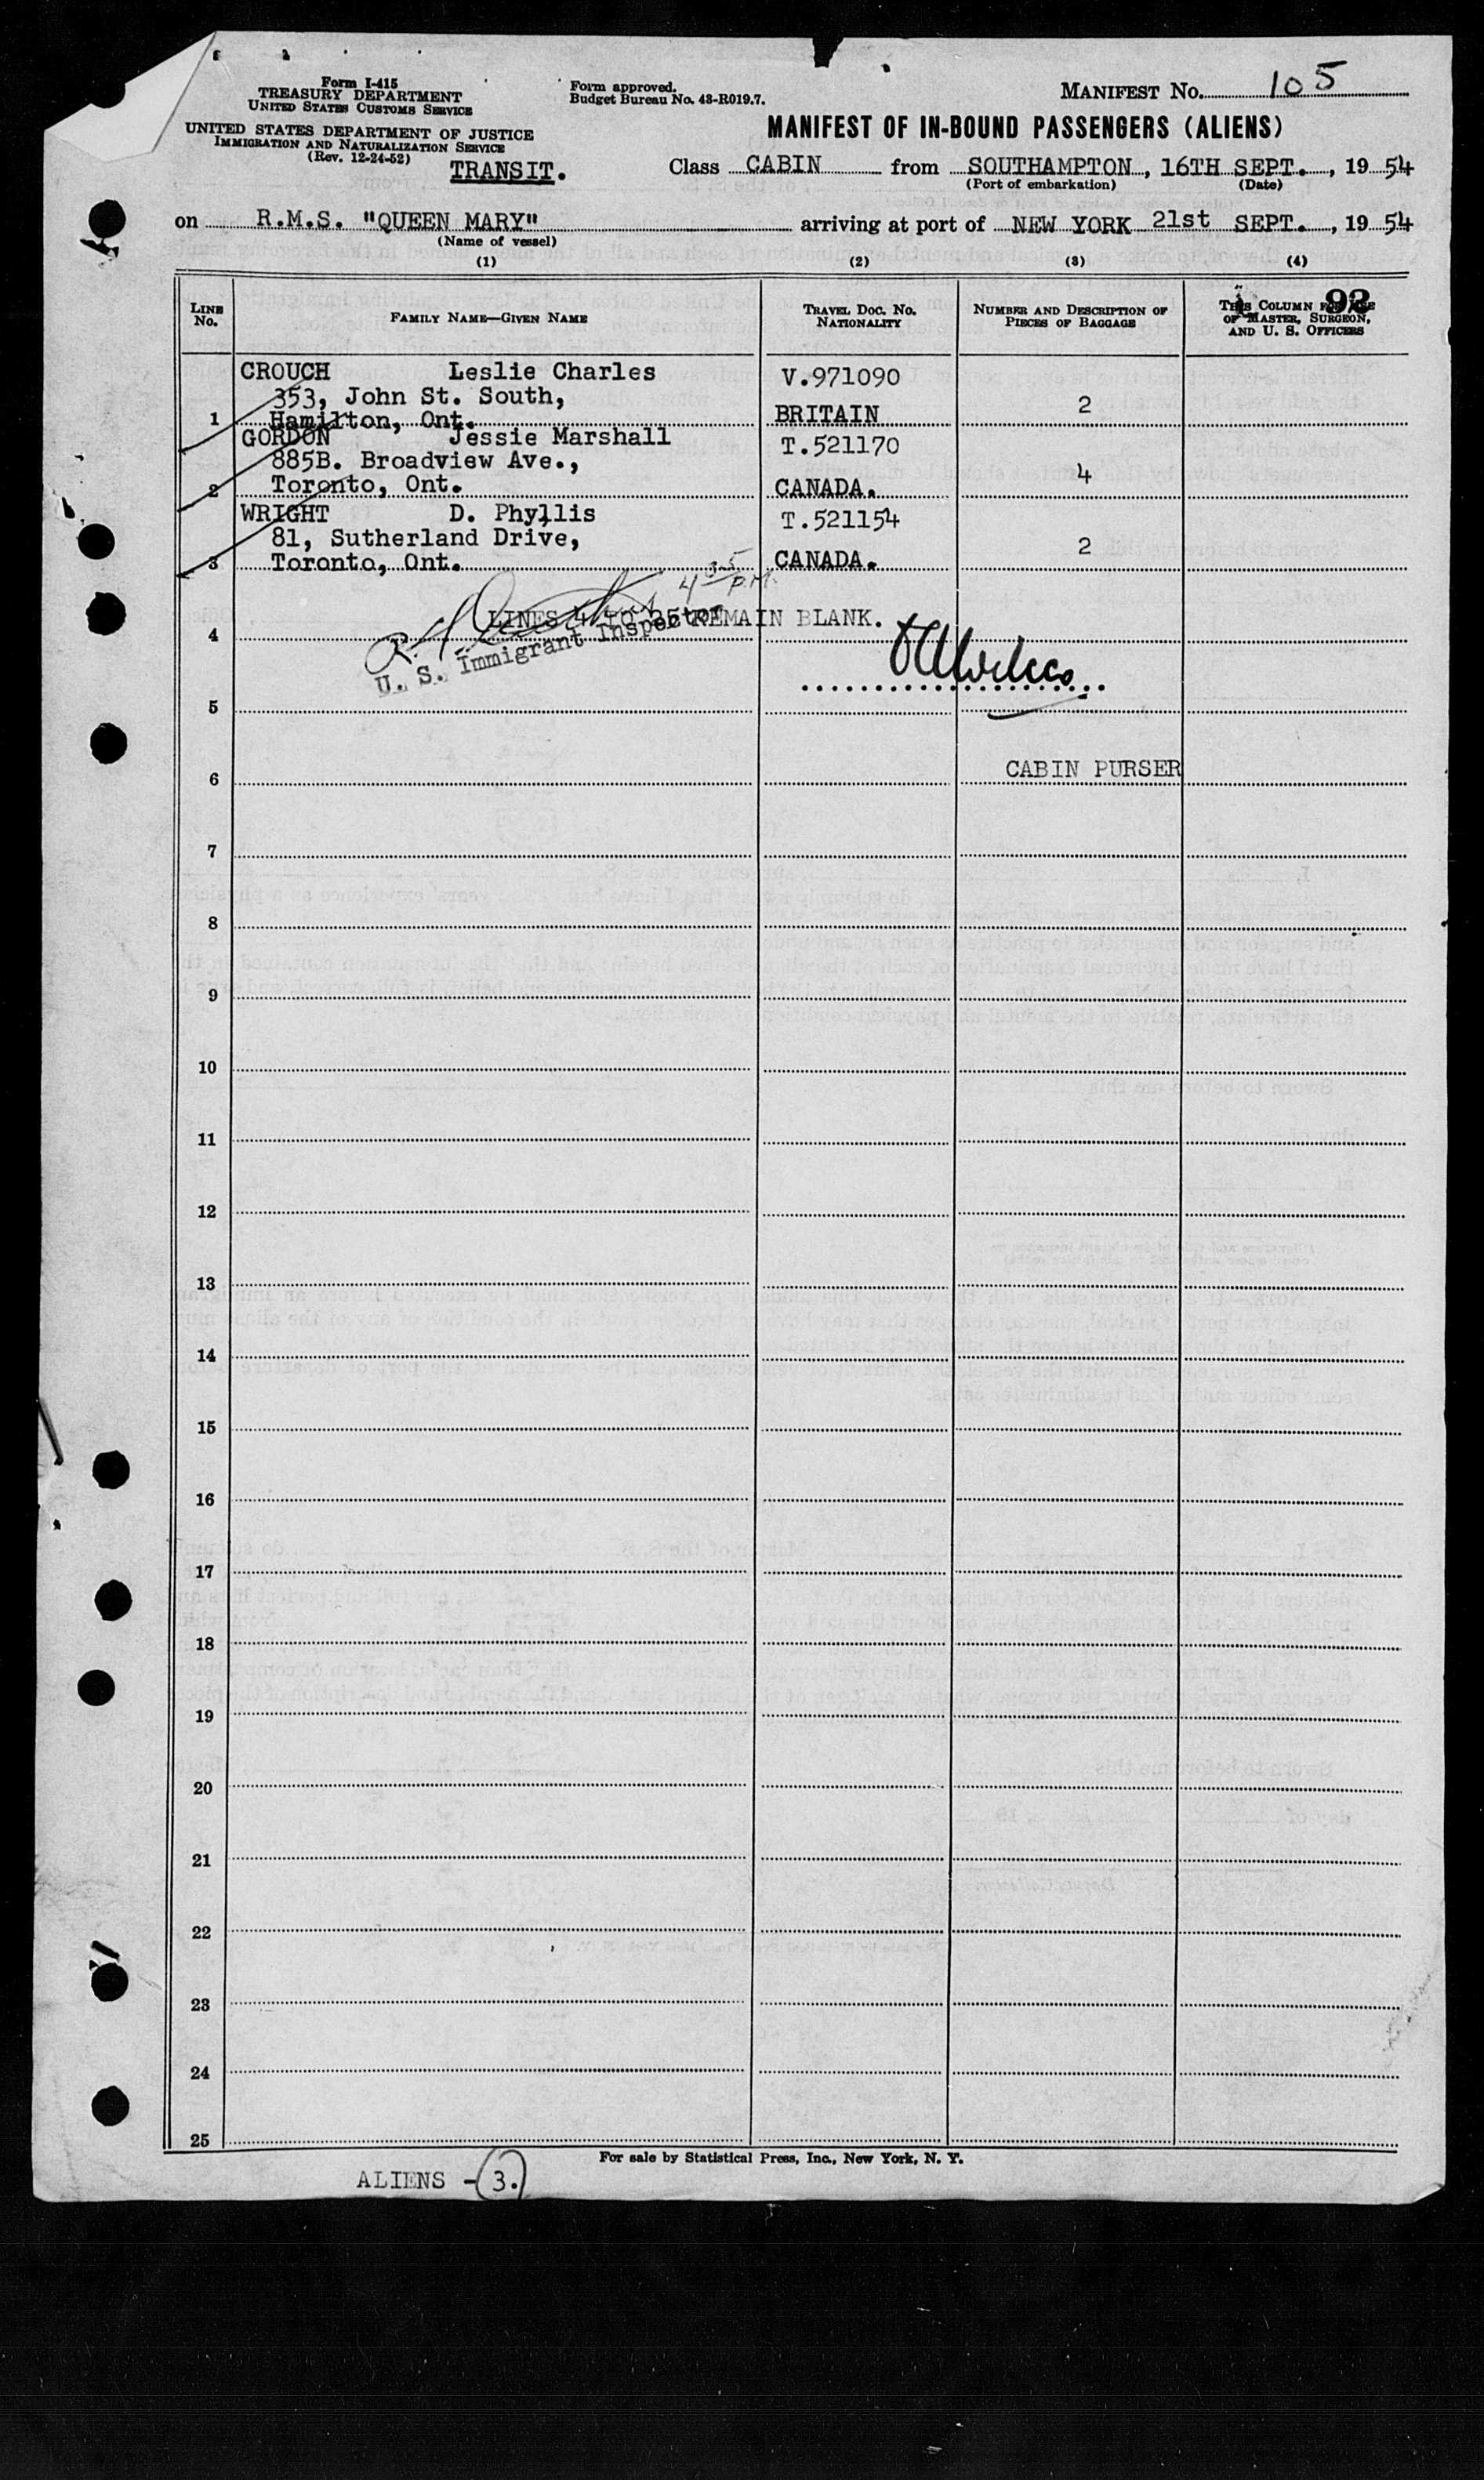 Form I-415
TREASURY DEPARTMENT
UNITED STATES CUSTOMS SERVICE
UNITED STATES DEPARTMENT OF JUSTICE
IMMIGRATION AND NATURALIZATION SERVICE
(Rev. 12-24-52)
TRANSIT.
Form approved.
Budget Bureau No. 43-R019.7.
MANIFEST No. 105
MANIFEST OF IN-BOUND PASSENGERS (ALIENS)
Class CABIN from SOUTHAMPTON, 16TH SEPT., 19 54
(Port of embarkation) (Date)
on R.M.S. "QUEEN MARY" arriving at port of NEW YORK 21st SEPT., 19 54
(Name of vessel)
(1) (2) (3) (4)
LINE No. FAMILY NAME—GIVEN NAME TRAVEL DOC. NO. NATIONALITY NUMBER AND DESCRIPTION OF PIECES OF BAGGAGE THIS COLUMN FOR USE OF MASTER, SURGEON, AND U. S. OFFICERS
93
CROUCH Leslie Charles V.971090
353, John St. South,
1 Hamilton, Ont. BRITAIN 2
GORDON Jessie Marshall T.521170
885B. Broadview Ave.,
2 Toronto, Ont. CANADA. 4
WRIGHT D. Phyllis T.521154
81, Sutherland Drive,
3 Toronto, Ont. CANADA. 2
4 35 P.M.
LINES 4 TO 25 REMAIN BLANK.
4
U. S. Immigrant Inspector
5
CABIN PURSER
6
7
8
9
10
11
12
13
14
15
16
17
18
19
20
21
22
23
24
25
For sale by Statistical Press, Inc., New York, N. Y.
ALIENS - 3.